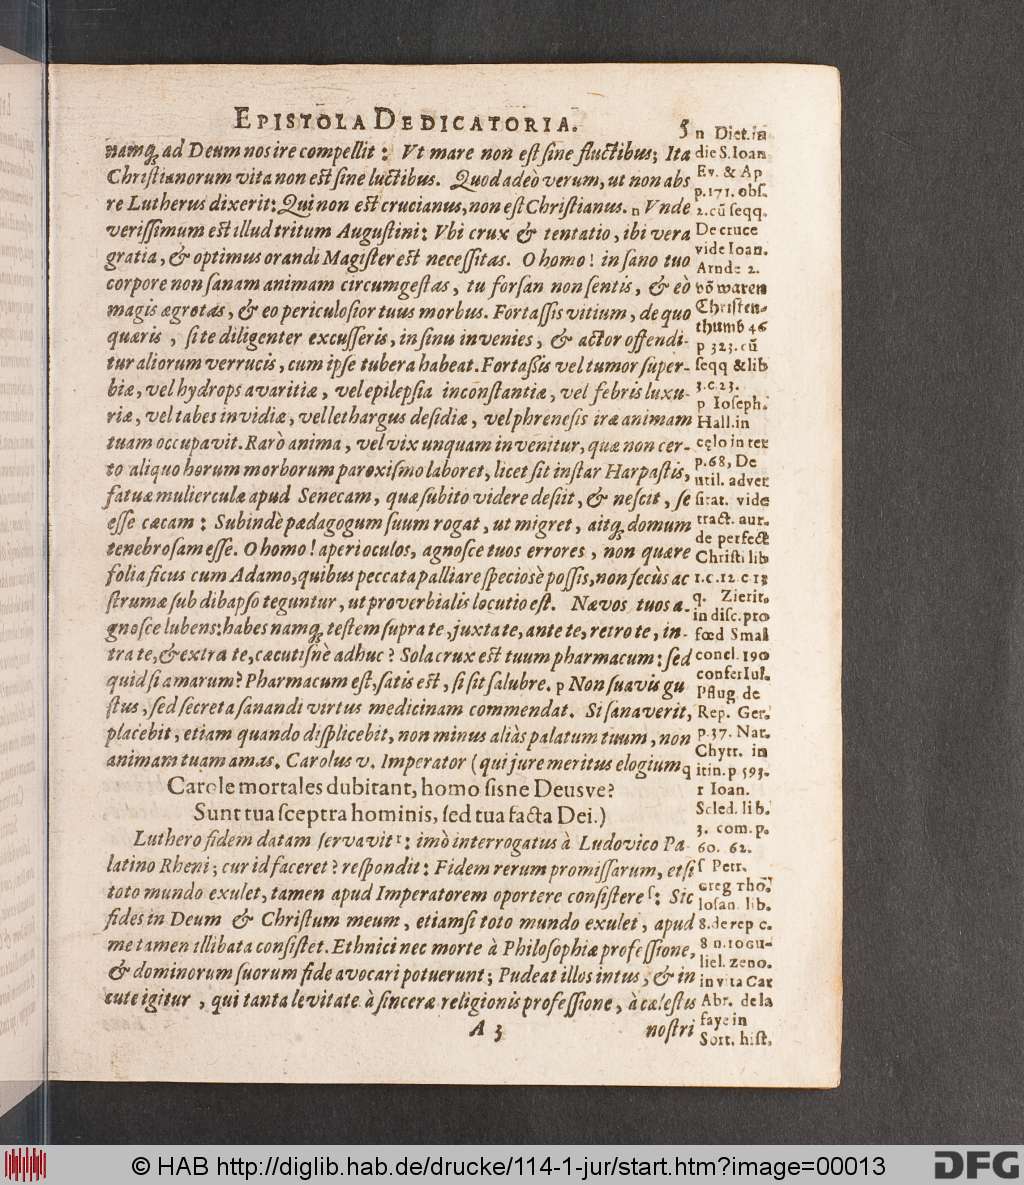 EPISTOLA DEDICATORIA. 5
namq; ad Deum nos ire compellit: Vt mare non est sine fluctibus; Ita
Christianorum vita non est sine luctibus. Quod adeò verum, ut non abs
re Lutherus dixerit: Qui non est crucianus, non est Christianus. n Vnde
verissimum est illud tritum Augustini: Vbi crux & tentatio, ibi vera
gratia, & optimus orandi Magister est necessitas. O homo! in sano tuo
corpore non sanam animam circumgestas, tu forsan non sentis, & eò
magis ægrotas, & eo periculosior tuus morbus. Fortassis vitium, de quo
quæris, si te diligenter excusseris, in sinu invenies, & actor offendi-
tur aliorum verrucis, cum ipse tubera habeat. Fortaßis vel tumor super-
biæ, vel hydrops avaritiæ, vel epilepsia inconstantiæ, vel febris luxu-
riæ, vel tabes invidiæ, vel lethargus desidiæ, vel phrenesis iræ animam
tuam occupavit. Rarò anima, vel vix unquam invenitur, quæ non cer-
to aliquo horum morborum paroxismo laboret, licet sit instar Harpastis,
fatuæ mulierculæ apud Senecam, quæ subito videre desiit, & nescit, se
esse cæcam: Subindè pædagogum suum rogat, ut migret, aitq; domum
tenebrosam esse. O homo! aperi oculos, agnosce tuos errores, non quære
folia ficus cum Adamo, quibus peccata palliare speciosè possis, non secùs ac
strumæ sub dibapho teguntur, ut proverbialis locutio est. Nævos tuos a-
gnosce lubens: habes namq; testem supra te, juxta te, ante te, retro te, in-
tra te, & extra te, cæcutisnè adhuc? Sola crux est tuum pharmacum: sed
quid si amarum? Pharmacum est, satis est, si sit salubre. p Non suavis gu
stus, sed secreta sanandi virtus medicinam commendat. Si sanaverit,
placebit, etiam quando displicebit, non minus aliàs palatum tuum, non
animam tuam amas. Carolus v. Imperator (qui jure meritus elogium q
Carole mortales dubitant, homo sisne Deusve?
Sunt tua sceptra hominis, sed tua facta Dei.)
Luthero fidem datam servavit r: imò interrogatus à Ludovico Pa-
latino Rheni; cur id faceret? respondit: Fidem rerum promissarum, etsi
toto mundo exulet, tamen apud Imperatorem oportere consistere s: Sic
fides in Deum & Christum meum, etiamsi toto mundo exulet, apud
me tamen illibata consistet. Ethnici nec morte à Philosophiæ professione,
& dominorum suorum fide avocari potuerunt; Pudeat illos intus, & in
cute igitur, qui tanta levitate à sinceræ religionis professione, à cælestis
A 3 nostri
n Diet. in
die S. Ioan
Ev. & Ap
p. 171. obs.
2. cū seqq.
De cruce
vide Ioan.
Arnde 2.
vō waren
Christen-
thumb 46
p 323. cū
seqq & lib
3. c. 23.
p Ioseph.
Hall. in
cęlo in ter
p. 68, De
util. adver
sitat. vide
tract. aur.
de perfect
Christi lib
1. c. 12 c 13
q. Zierit.
in disc. pro
fœd Smal
concl. 190
confer Iul.
Pflug de
Rep. Ger.
p. 37. Nat.
Chytr. in
itin. p 593.
r Ioan.
Scled. lib.
3. com. p.
60. 62.
s Petr.
Greg tho.
losan. lib.
8. de rep c.
8 n. 10 Gu-
liel. Zeno.
in vita Car
Abr. de la
faye in
Sort. hist.
© HAB http://diglib.hab.de/drucke/114-1-jur/start.htm?image=00013
DFG